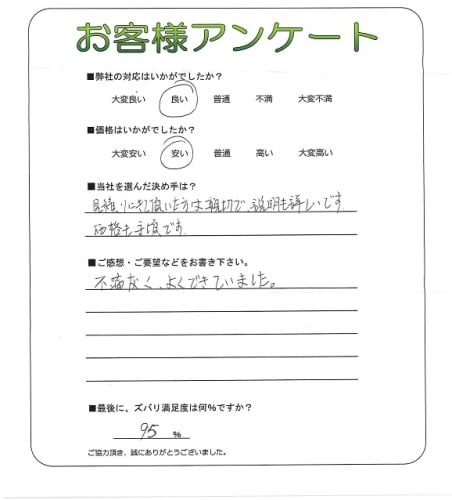 お客様アンケート
■弊社の対応はいかがでしたか？
大変良い 良い 普通 不満 大変不満
■価格はいかがでしたか？
大変安い 安い 普通 高い 大変高い
■当社を選んだ決め手は？
見積りにきて頂いた方は親切で、説明も詳しいです
価格も手頃です。
■ご感想・ご要望などをお書き下さい。
不満なく、よくできていました。
■最後に、ズバリ満足度は何％ですか？
95 ％
ご協力頂き、誠にありがとうございました。